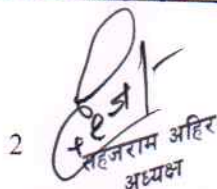 2
सहजराम अहिर
अध्यक्ष